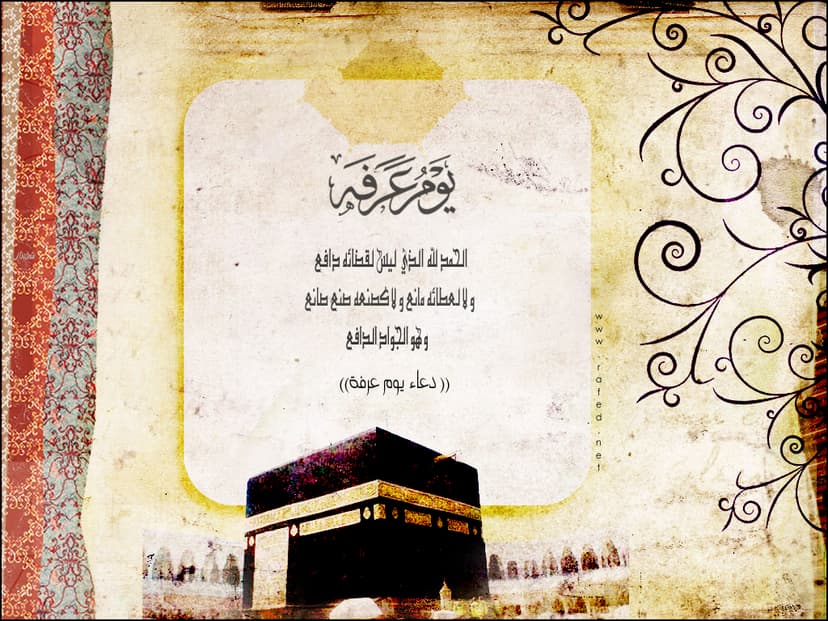 يَوْمُ عَرَفَه
الحمد لله الذي ليس لقضائه دافع
و لا لعطائه مانع و لا كصنعه صنع صانع
وهو الجواد الدافع
(( دعاء يوم عرفة))
www.rafed.net